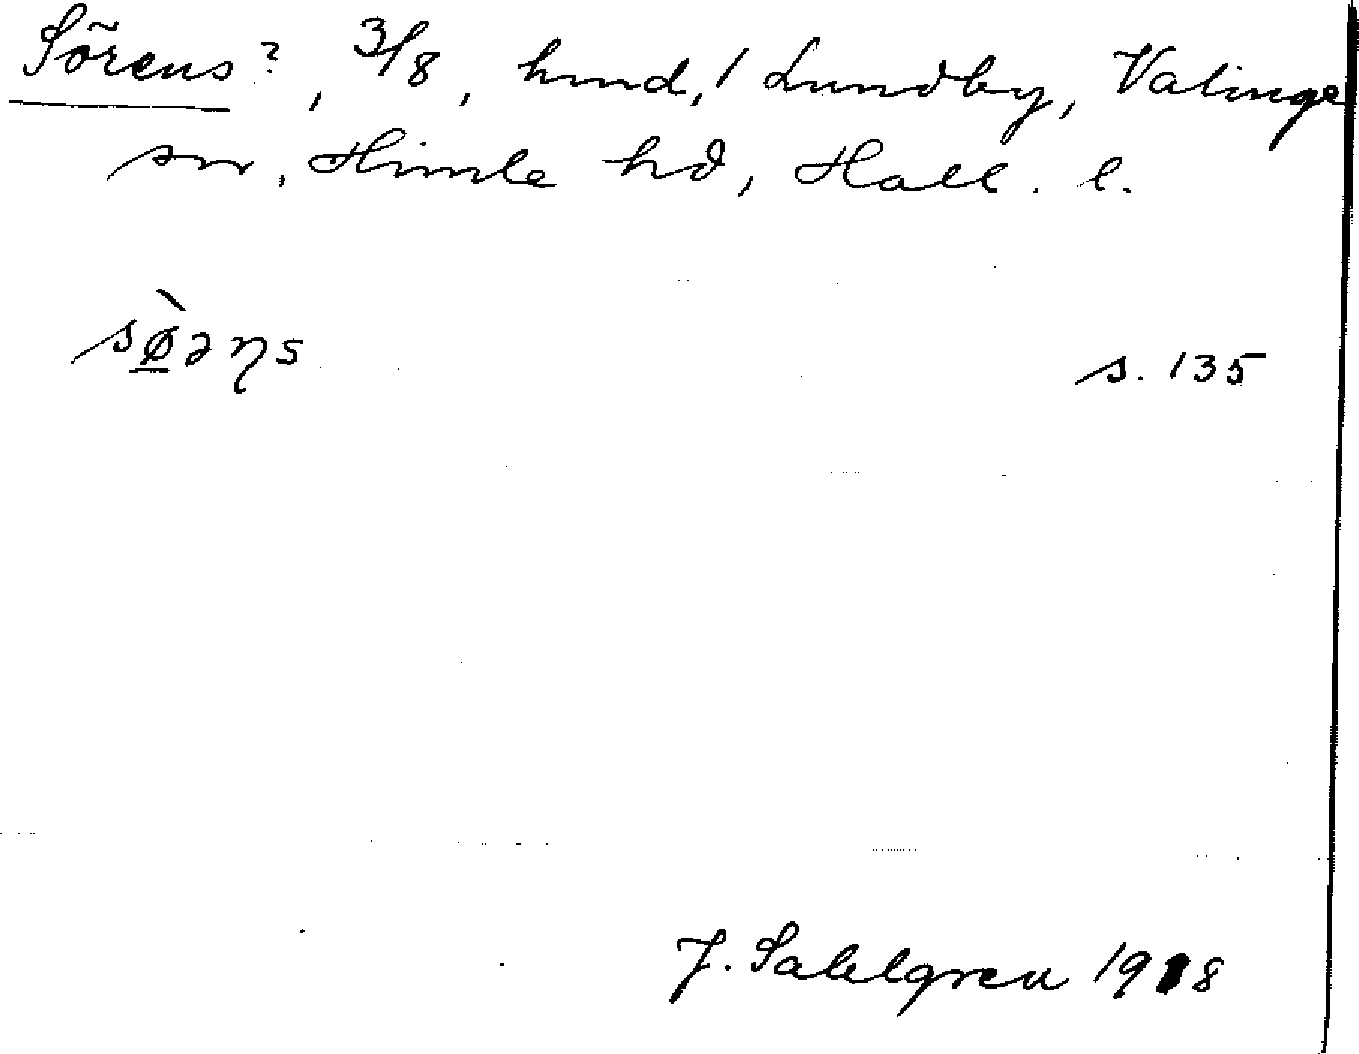 Sörens?, 3/8, hmd, 1 Lundby, Valinge
sn, Himle hd, Hall. l.
sø̀əηs s. 135
J. Sahlgren 1918